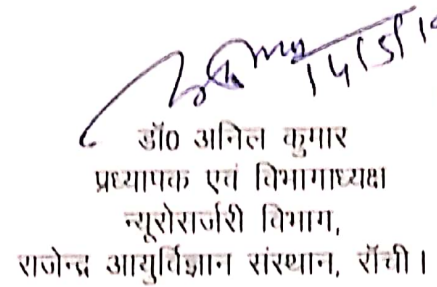 14/5/1
डॉ0 अनिल कुमार
प्रध्यापक एवं विभागाध्यक्ष
न्यूरोसर्जरी विभाग,
राजेन्द्र आयुर्विज्ञान संस्थान, राँची।